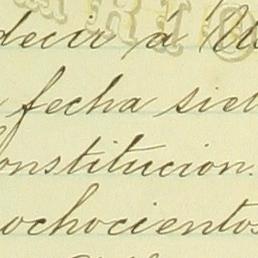 decir á
fecha
onstitucion.
ochocientos